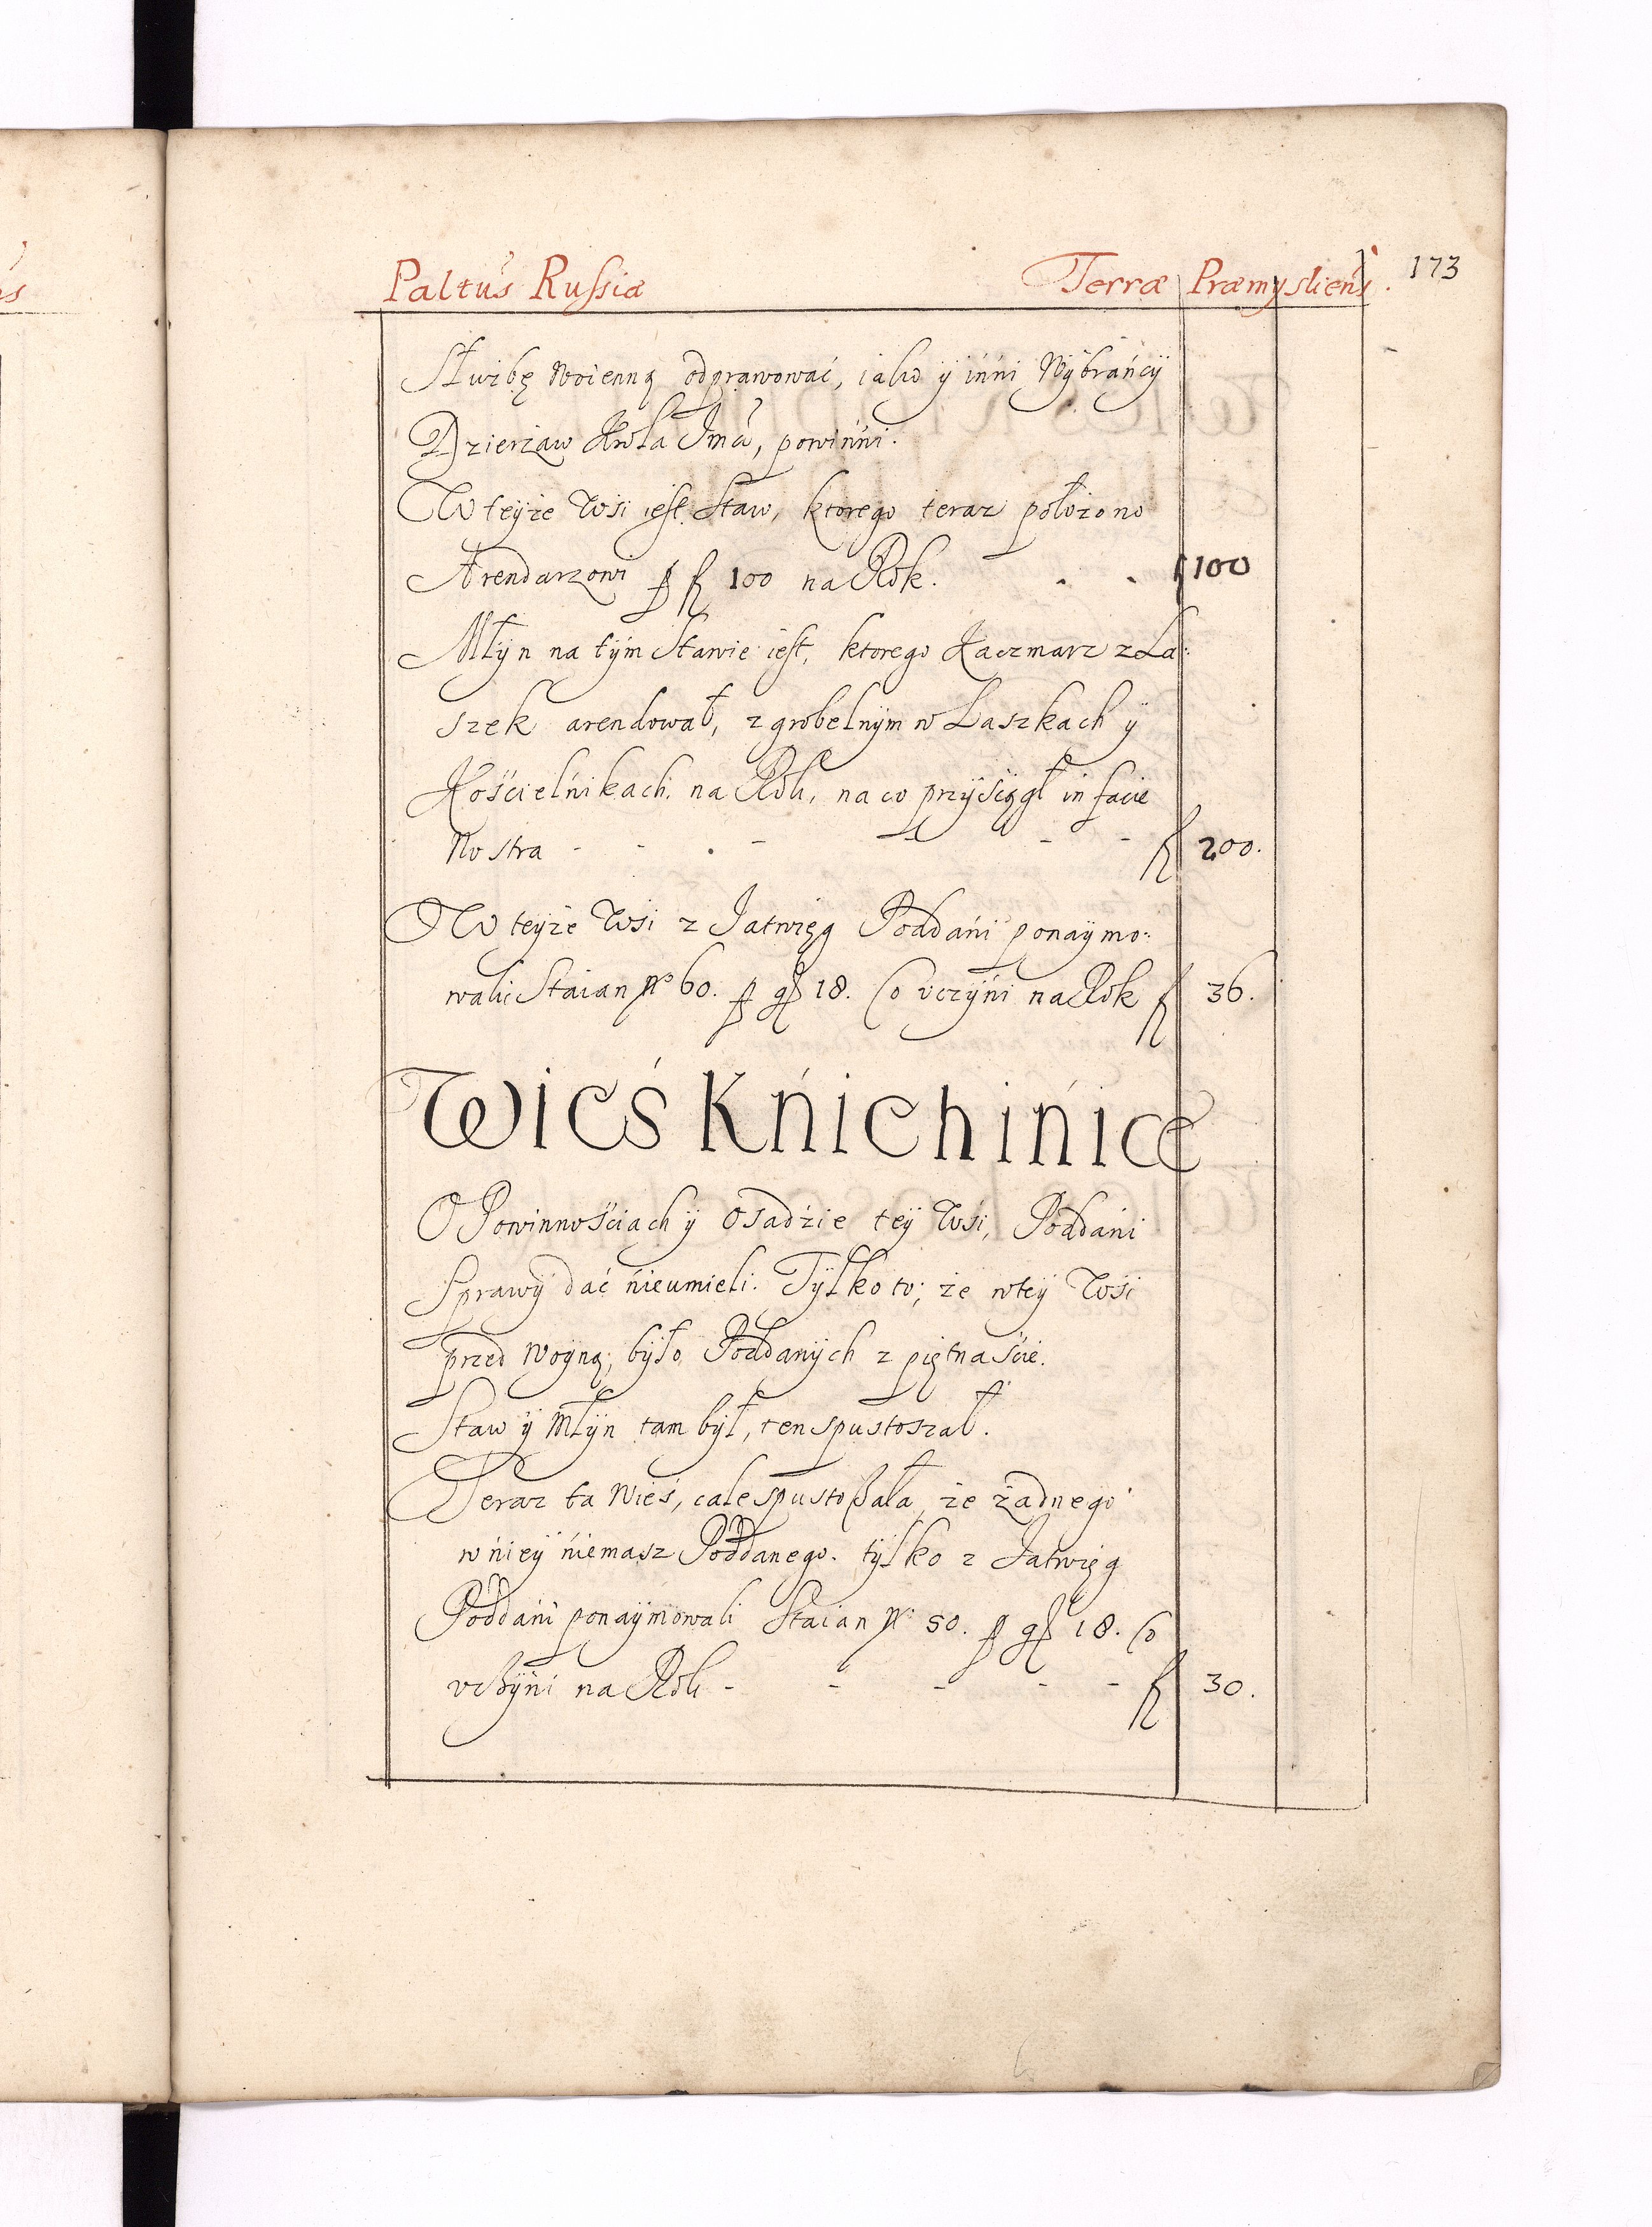 Paltus Russiæ Terræ Præmysliens. 173
Służbę woienną odprawować, iako ÿ inni Wÿbrańcÿ
Dzierżaw Krola Jmci, powinni.
W teÿże Wsi iest Staw, ktorego teraz położono
Arendarzowi p fl 100 na Rok. . . fl 100
Młÿn na tÿm Stawie iest, ktorego Kaczmarz z La:
szek arendował, z grobelnÿm w Laszkach ÿ
Kościelnikach na Rok, na co przÿsiągł in facie
Nostra - - . - - - - fl 200.
W teÿże Wsi z Jatwięg Poddani ponaÿmo:
wali Staian No 60. p gr 18. Co vczÿni na Rok fl 36.
Wieś Knichinice
O Powinnościach ÿ Osadzie teÿ Wsi, Poddani
Sprawÿ dać nieumieli. Tÿlko to, że wteÿ Wsi
przed Woÿną, bÿło Poddanÿch z piętnaście.
Staw ÿ Młÿn tam bÿł, ten spustoszał.
Teraz ta Wieś, cale spustoszała, że żadnego
w nieÿ niemasz Poddanego. tÿlko z Jatwięg
Poddani ponaÿmowali Staian No 50. p gr 18. Co
vczÿni na Rok - - - - - fl 30.